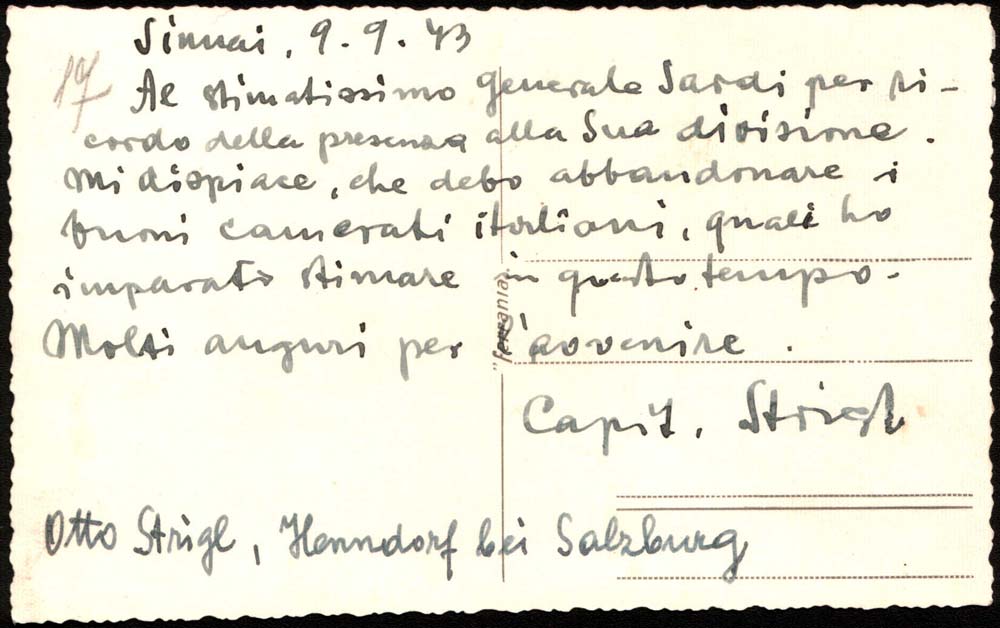 Sinnai, 9.9.43
17
Al stimatissimo generale Sardi per ri-
cordo della presenza alla Sua divisione.
Mi dispiace, che debo abbandonare i
buoni camerati italiani, quali ho
imparato stimare in questo tempo.
Molti auguri per l'avvenire.
"Ferrania"
Capit. Strigl
Otto Strigl, Henndorf bei Salzburg